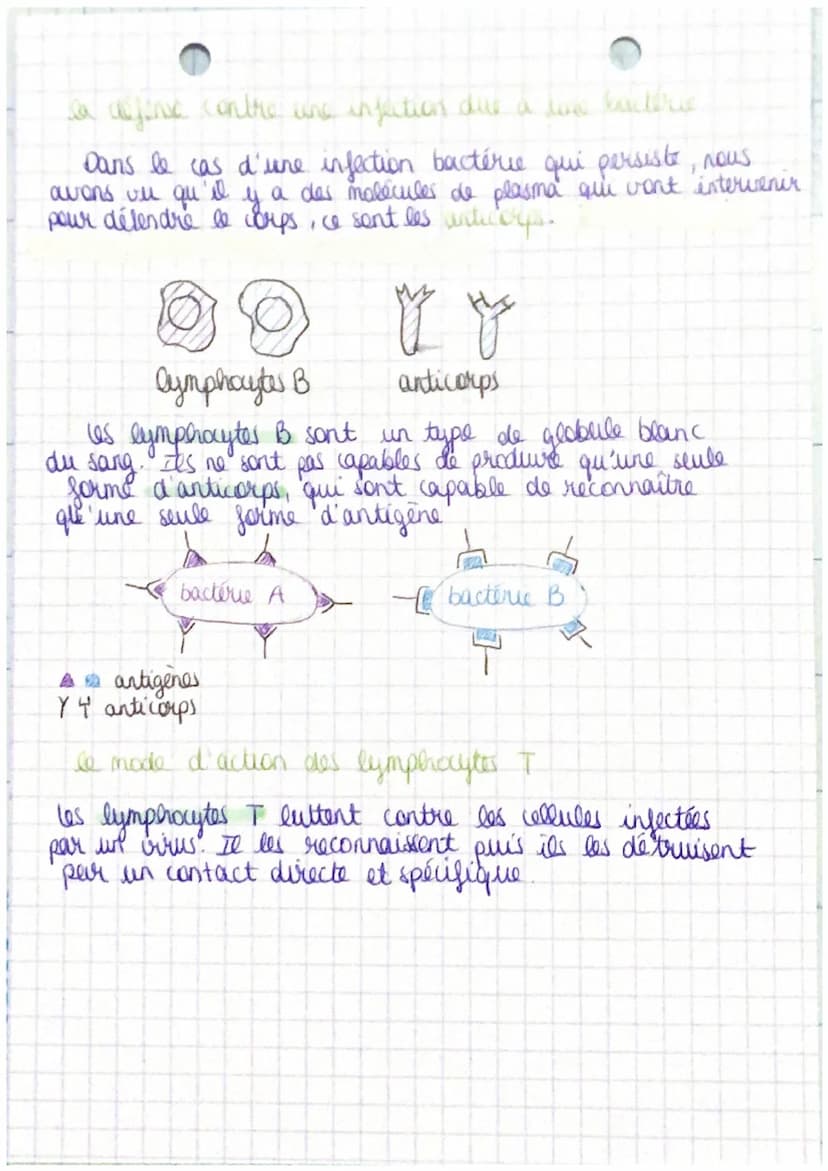 la défense contre une infection due à une bactérie
Dans le cas d'une infection bactérie qui persiste, nous
avons vu qu'il y a des molécules de plasma qui vont intervenir
pour défendre le corps, ce sont les anticorps.
lymphocytes B anticorps
les lymphocytes B sont un type de globule blanc
du sang. Ils ne sont pas capables de produire qu'une seule
forme d'anticorps, qui sont capable de reconnaître
qu'une seule forme d'antigène
bactérie A bactérie B
antigènes
anticorps
le mode d'action des lymphocytes T
les lymphocytes T luttent contre les cellules infectées
par un virus. Il les reconnaissent puis ils les détruisent
par un contact directe et spécifique.